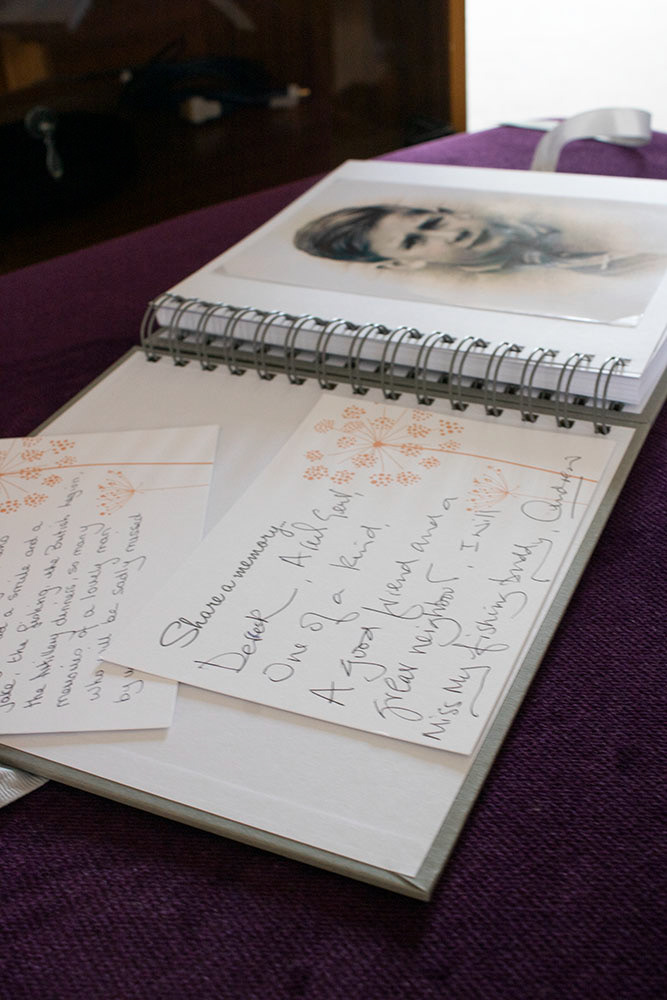 a smile and a
joke, the fishing, the British Legion,
the Artillery dinners, so many
memories of a lovely man
who will be sadly missed
by
Share a memory
Derek, A real Gent,
One of a kind,
A good friend and a
great neighbour, I will
Miss My fishing buddy, Andrew